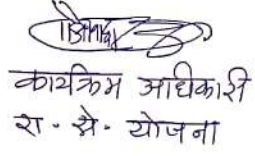 कार्यक्रम अधिकारी
रा॰ से॰ योजना